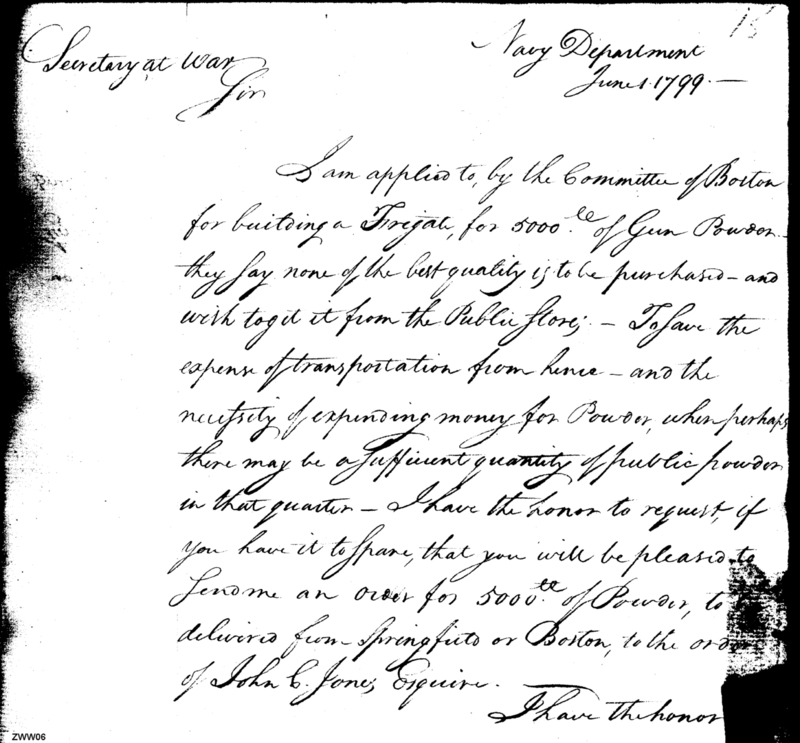 15
Secretary at War
Navy Department
June 1. 1799. —
Sir
I am applied to, by the Committee of Boston
for building a Frigate, for 5000 lb of Gun Powder —
they say none of the best quality is to be purchased — and
wish to get it from the Public Stores; — To save the
expense of transportation from hence — and the
necessity of expending money for Powder, when perhaps
there may be a sufficient quantity of public powder
in that quarter — I have the honor to request, if
you have it to spare, that you will be pleased to
send me an order for 5000 lb of Powder, to
delivered from Springfield or Boston, to the order
of John C. Jones, Esquire.
I have the honor
ZWW06